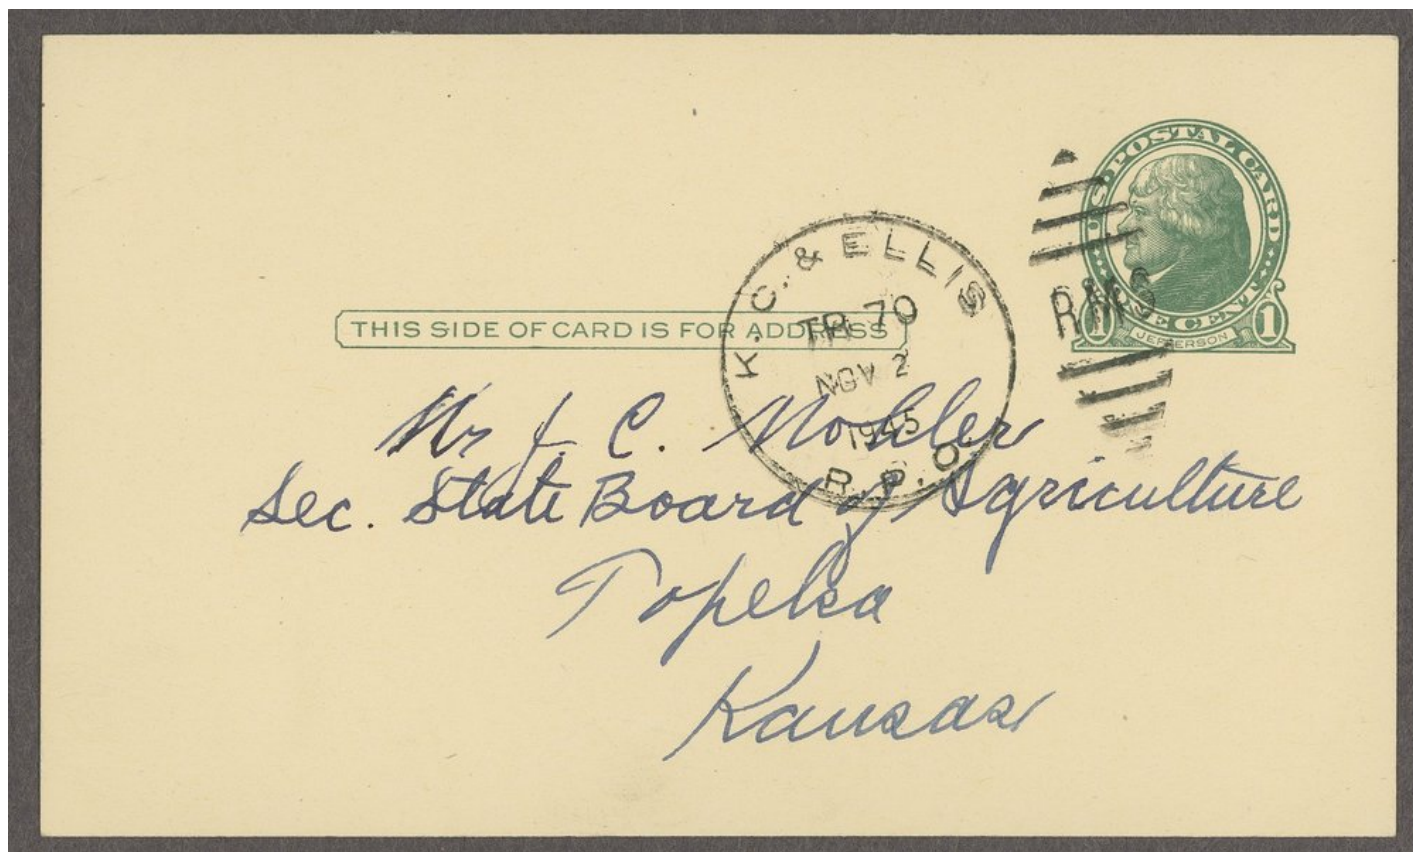 U.S. POSTAL CARD
ONE CENT
1 1
JEFFERSON
K.C. & ELLIS
TR 70
NOV 2
1945
R.P.O.
RMS
THIS SIDE OF CARD IS FOR ADDRESS
Mr J. C. Mohler
Sec. State Board of Agriculture
Topeka
Kansas